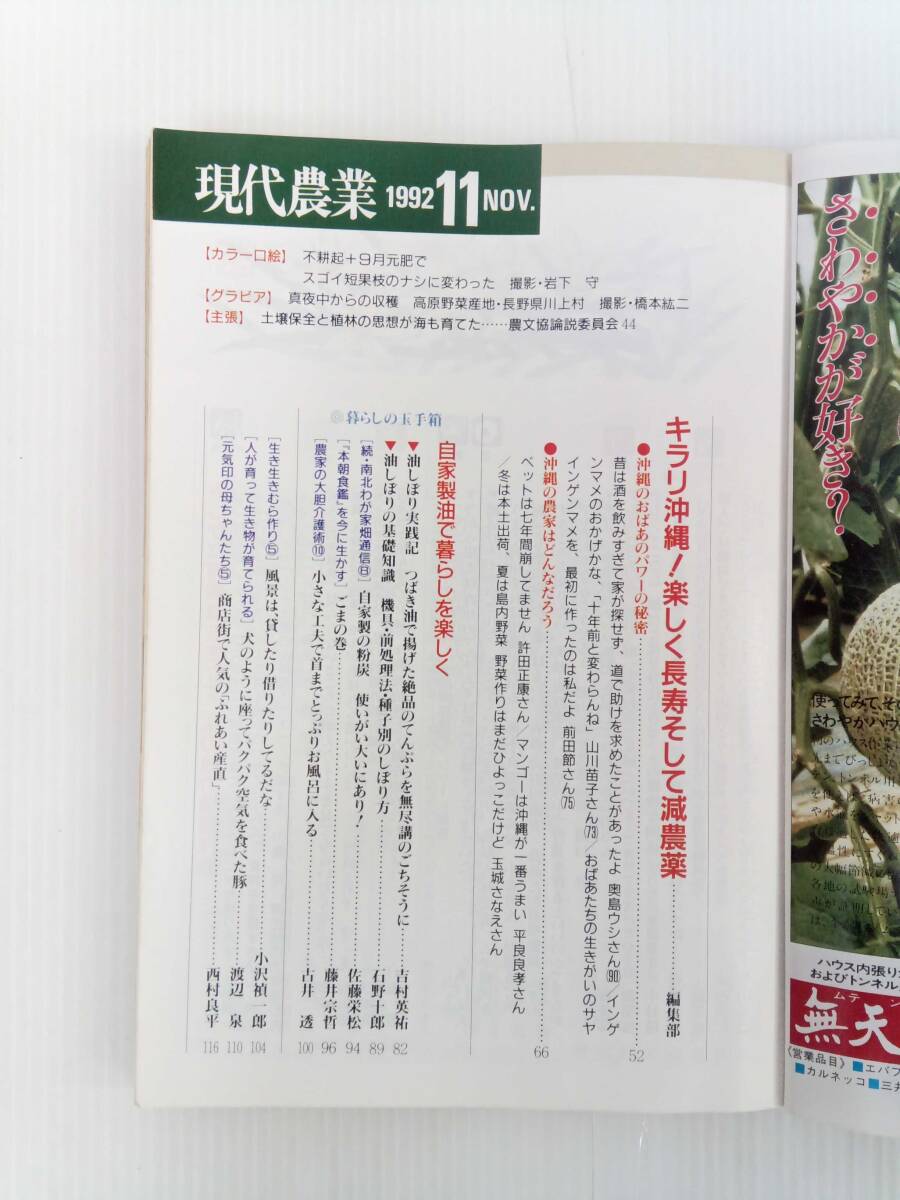 現代農業 1992 11 NOV.
【カラー口絵】 不耕起+9月元肥で
スゴイ短果枝のナシに変わった 撮影・岩下 守
【グラビア】 真夜中からの収穫 高原野菜産地・長野県川上村 撮影・橋本紘二
【主張】 土壌保全と植林の思想が海も育てた……農文協論説委員会 44
キラリ沖縄!楽しく長寿そして減農薬………編集部
●沖縄のおばあのパワーの秘密………52
昔は酒を飲みすぎて家が探せず、道で助けを求めたことがあったよ 奥島ウシさん(90)/インゲ
ンマメのおかげかな、「十年前と変わらんね」 山川苗子さん(73)/おばあたちの生きがいのサヤ
インゲンマメを、最初に作ったのは私だよ 前田節さん(75)
●沖縄の農家はどんなだろう………66
ベットは七年間崩してません 許田正康さん/マンゴーは沖縄が一番うまい 平良良孝さん
/冬は本土出荷、夏は島内野菜 野菜作りはまだひよっこだけど 玉城さなえさん
暮らしの玉手箱
自家製油で暮らしを楽しく
▼油しぼり実践記 つばき油で揚げた絶品のてんぷらを無尽講のごちそうに………吉村英祐 82
▼油しぼりの基礎知識 機具・前処理法・種子別のしぼり方………石野十郎 89
[続・南北わが家畑通信⑧] 自家製の粉炭 使いがい大いにあり!………佐藤栄松 94
[『本朝食鑑』を今に生かす] ごまの巻………藤井宗哲 96
[農家の大胆介護術⑩] 小さな工夫で首までとっぷりお風呂に入る………古井 透 100
[生き生きむら作り⑤] 風景は、貸したり借りたりしてるだな………小沢禎一郎 104
[人が育って生き物が育てられる] 犬のように座ってパクパク空気を食べた豚………渡辺 泉 110
[元気印の母ちゃんたち⑤] 商店街で人気の「ふれあい産直」………西村良平 116
さわやかが好き?
使ってみて、その
さわやかハウ
ハウス内張り
およびトンネル
ムテン
無天
《営業品目》■エバフ
■カルネッコ■三井